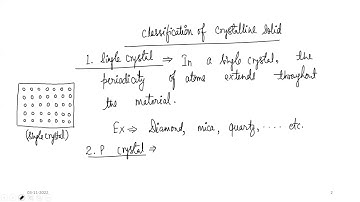 Classification of Crystalline Solid
1. Single Crystal ⇒ In a single crystal, the
periodicity of atoms extends throughout
the material.
(Single Crystal)
Ex ⇒ Diamond, mica, quartz, .... etc.
2. P crystal ⇒
03-11-2022
2